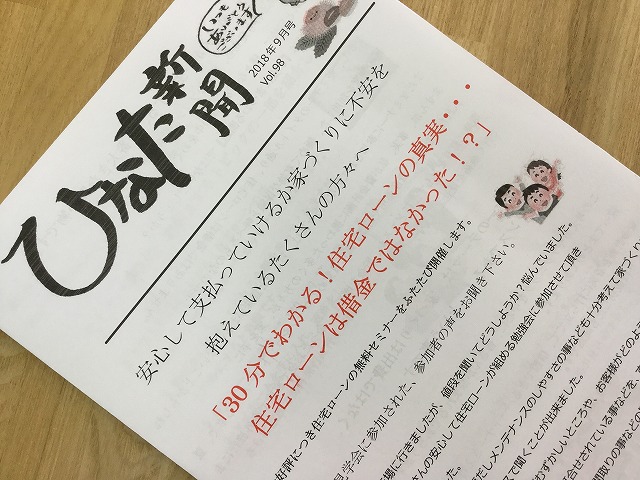 ひなた新聞
2018年9月号
Vol.98
安心して支払っていけるか家づくりに不安を
抱えているたくさんの方々へ
「30分でわかる！住宅ローンの真実・・・
住宅ローンは借金ではなかった！？」
好評につき住宅ローンの無料セミナーをふたたび開催します。
見学会に参加された、参加者の声をお聞き下さい。
場に行きましたが、値段を聞いてどうしようか？悩んでいました。
さんの安心して住宅ローンが組める勉強会に参加させて頂き
た。
だしメンテナンスのしやすさの事なども十分考えて家づくり
スで聞くことが出来ました。
むずかしいところや、お客様がどのよ
合せされている事などを
間取りの事などの